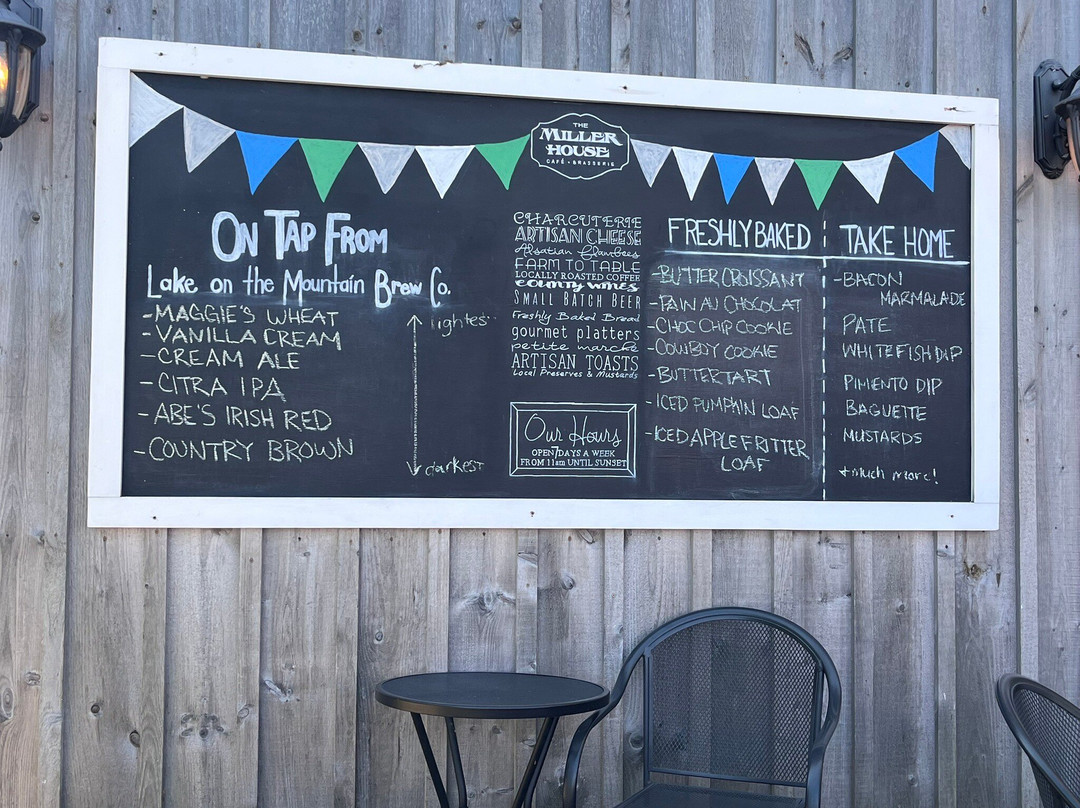 THE
MILLER
HOUSE
CAFÉ • BRASSERIE
ON TAP FROM
Lake on the Mountain Brew Co.
-MAGGIE'S WHEAT
-VANILLA CREAM
-CREAM ALE
-CITRA IPA
-ABE'S IRISH RED
-COUNTRY BROWN
lightest
darkest
CHARCUTERIE
ARTISAN CHEESE
Alsatian Flambees
FARM TO TABLE
LOCALLY ROASTED COFFEE
COUNTY WINES
SMALL BATCH BEER
Freshly Baked Bread
gourmet platters
petite marché
ARTISAN TOASTS
Local Preserves & Mustards
Our Hours
OPEN 7 DAYS A WEEK
FROM 11am UNTIL SUNSET
FRESHLY BAKED
-BUTTER CROISSANT
-PAIN AU CHOCOLAT
-CHOC CHIP COOKIE
-COWBOY COOKIE
-BUTTERTART
-ICED PUMPKIN LOAF
-ICED APPLE FRITTER
LOAF
TAKE HOME
-BACON
MARMALADE
PATE
WHITEFISH DIP
PIMIENTO DIP
BAGUETTE
MUSTARDS
+much more!